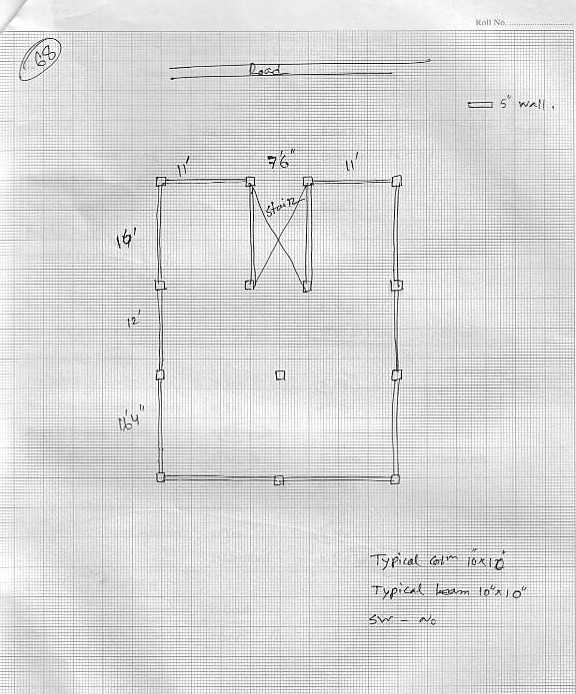 Roll No.
68
Road
5" wall.
11'
7'6"
11'
Stair
10'
12'
16'4"
Typical colm 10"x10"
Typical beam 10"x10"
SW - No